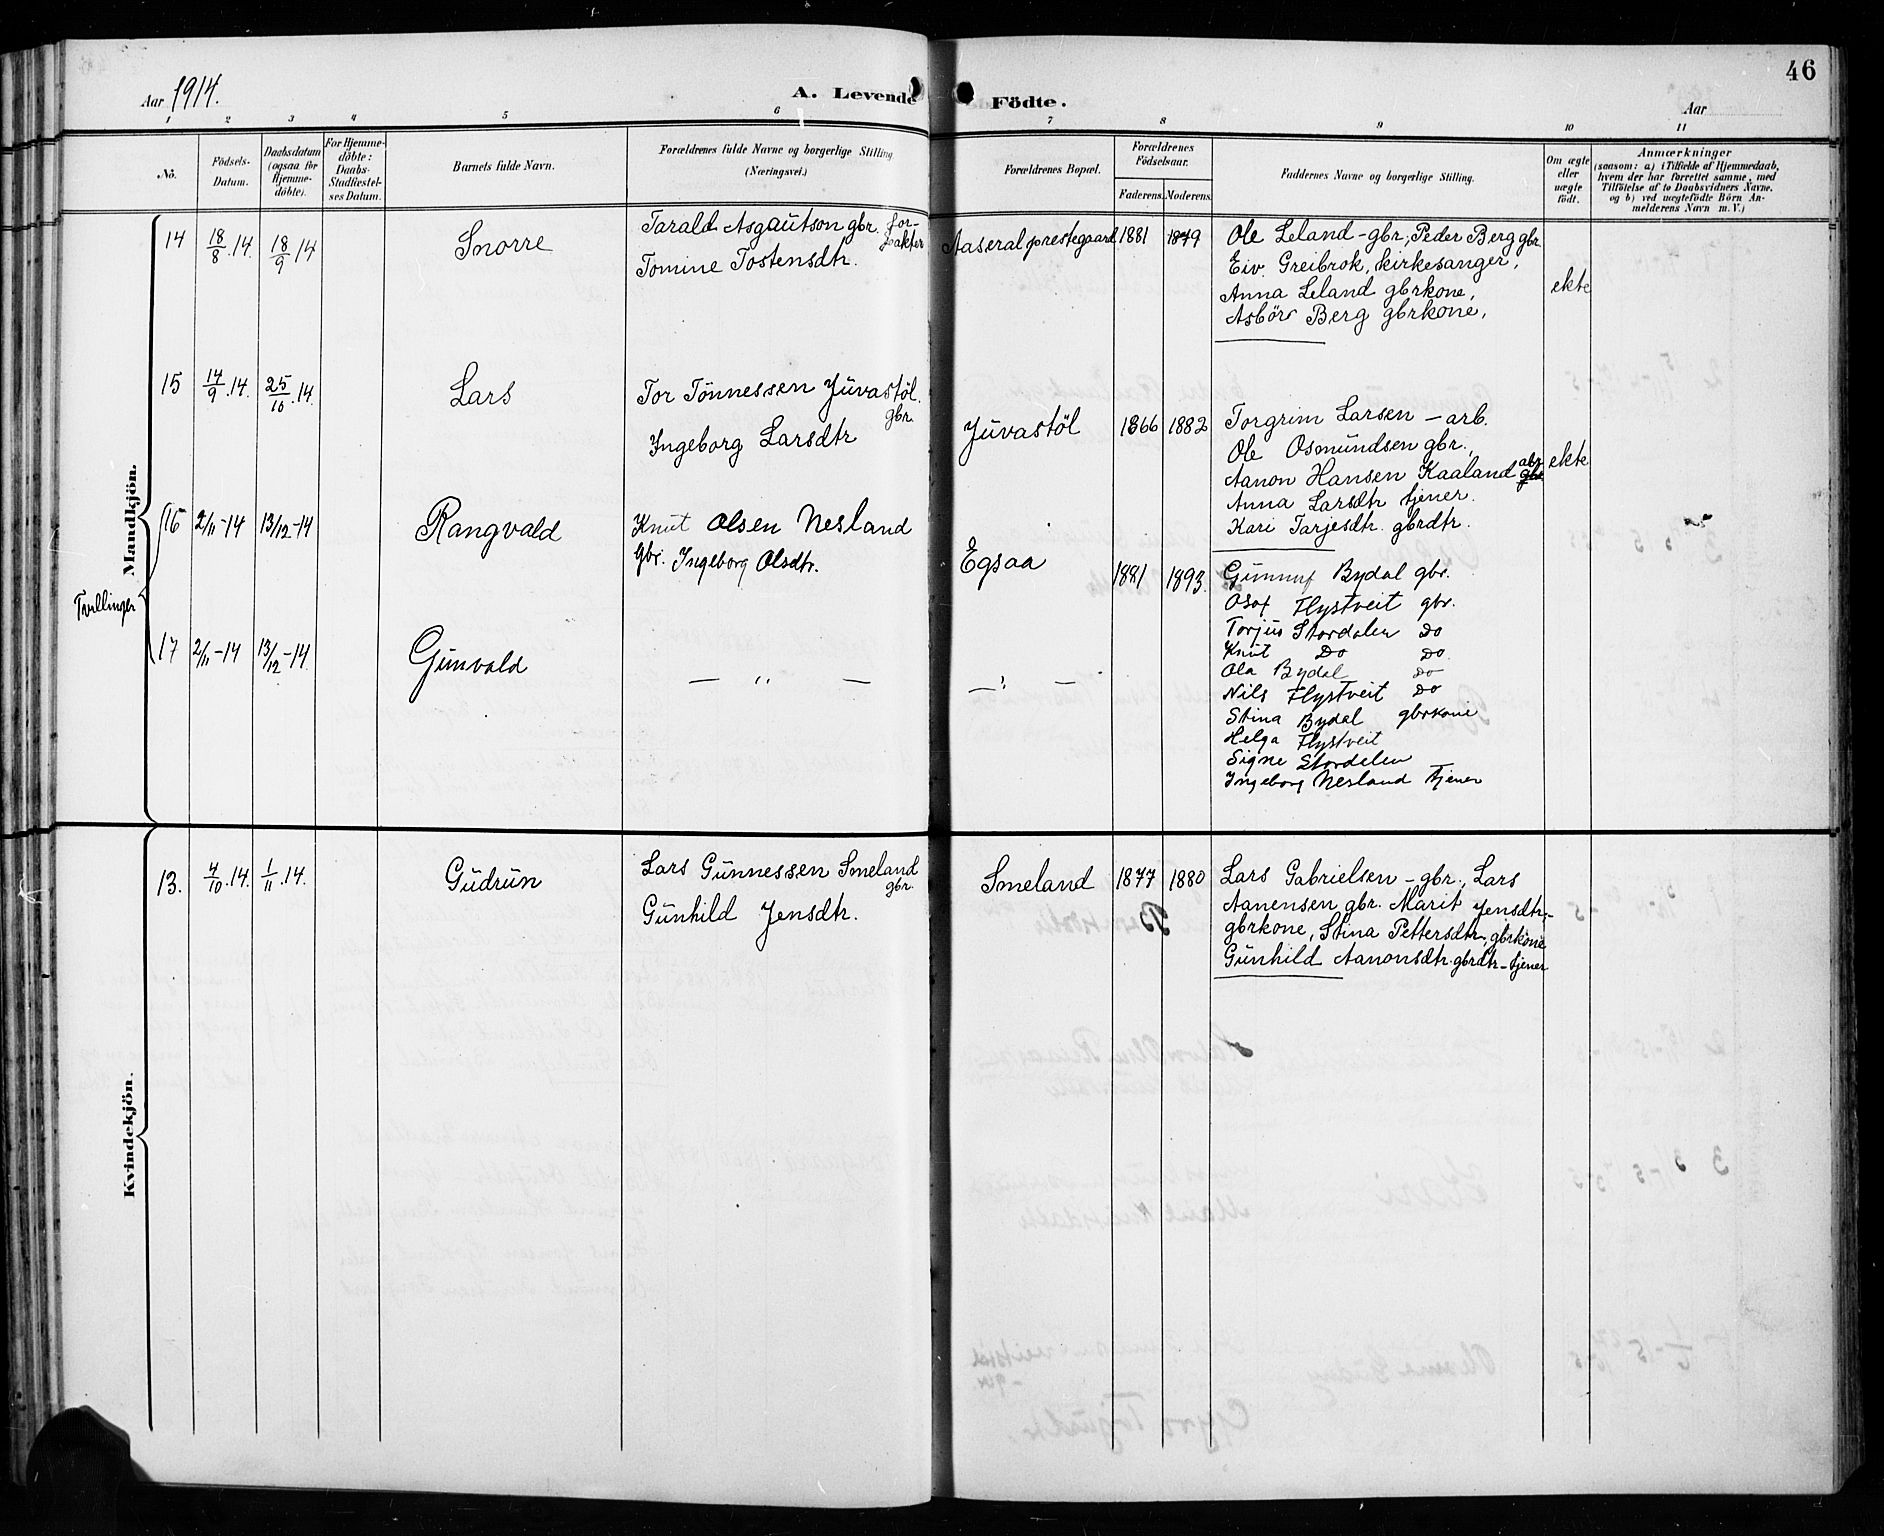 46
Aar 1914.
A. Levende Födte.
Aar
1 2 3 4 5 6 7 8 9 10 11
No.
Födsels-
Datum.
Daabsdatum
(ogsaa for
Hjemme-
döbte).
For Hjemme-
döbte:
Daabs-
Stadfæstel-
ses Datum.
Barnets fulde Navn.
Forældrenes fulde Navne og borgerlige Stilling
(Næringsvei.)
Forældrenes Bopæl.
Forældrenes
Födselsaar.
Faderens. Moderens.
Faddernes Navne og borgerlige Stilling.
Om ægte
eller
uægte
födt.
Anmærkninger
(saasom: a) i Tilfælde af Hjemmedaab,
hvem der har forrettet samme, med
Tilföielse af to Daabsvidners Navne.
og b) ved uægtefödte Börn An-
melderens Navn m. V.)
Mandkjön.
14 18/8.14. 18/9 14
Snorre
Tarald Asgautson gbr. for-
pakter
Tomine Tostensdtr.
Aaseral prestegaard 1881 1879
Ole Leland - gbr., Peder Berg gbr
Eiv. Greibrok, kirkesanger,
Anna Leland gbrkone,
Asbör Berg gbrkone,
ekte
15 14/9.14. 25/10.14.
Lars
Tor Tönnessen Juvastöl.
gbr.
Ingeborg Larsdtr
Juvastöl 1866 1882
Torgrim Larsen - arb.
Ole Osmundsen gbr.,
Aanon Hansen Kaaland
Anna Larsdtr tjener.
Kari Tarjesdtr. gbrdtr.
ekte
Tvillinger
16 2/11-14 13/12-14
Rangvald
Knut Olsen Nesland
Gbr. Ingeborg Olsdtr.
Egsaa 1881 1893.
Gunnuf Bydal gbr.
Osof Flystveit gbr.
Torjus Stordalen Do
Knut Do Do
Ola Bydal Do
Nils Flystveit Do
Stina Bydal gbrkone
Helga Flystveit
Signe Stordalen
Ingeborg Nesland Tjener
17 2/11-14 13/12-14
Gunvald
— „ —
— „ —
Kvindekjön.
13. 4/10.14. 1/11.14.
Gudrun
Lars Gunnessen Smeland
gbr.
Gunhild Jensdtr.
Smeland 1877 1880
Lars Gabrielsen - gbr., Lars
Aanensen gbr. Marit Jensdtr.-
gbrkone, Stina Pettersdtr, gbrkone
Gunhild Aanonsdtr. gbrdtr - tjener